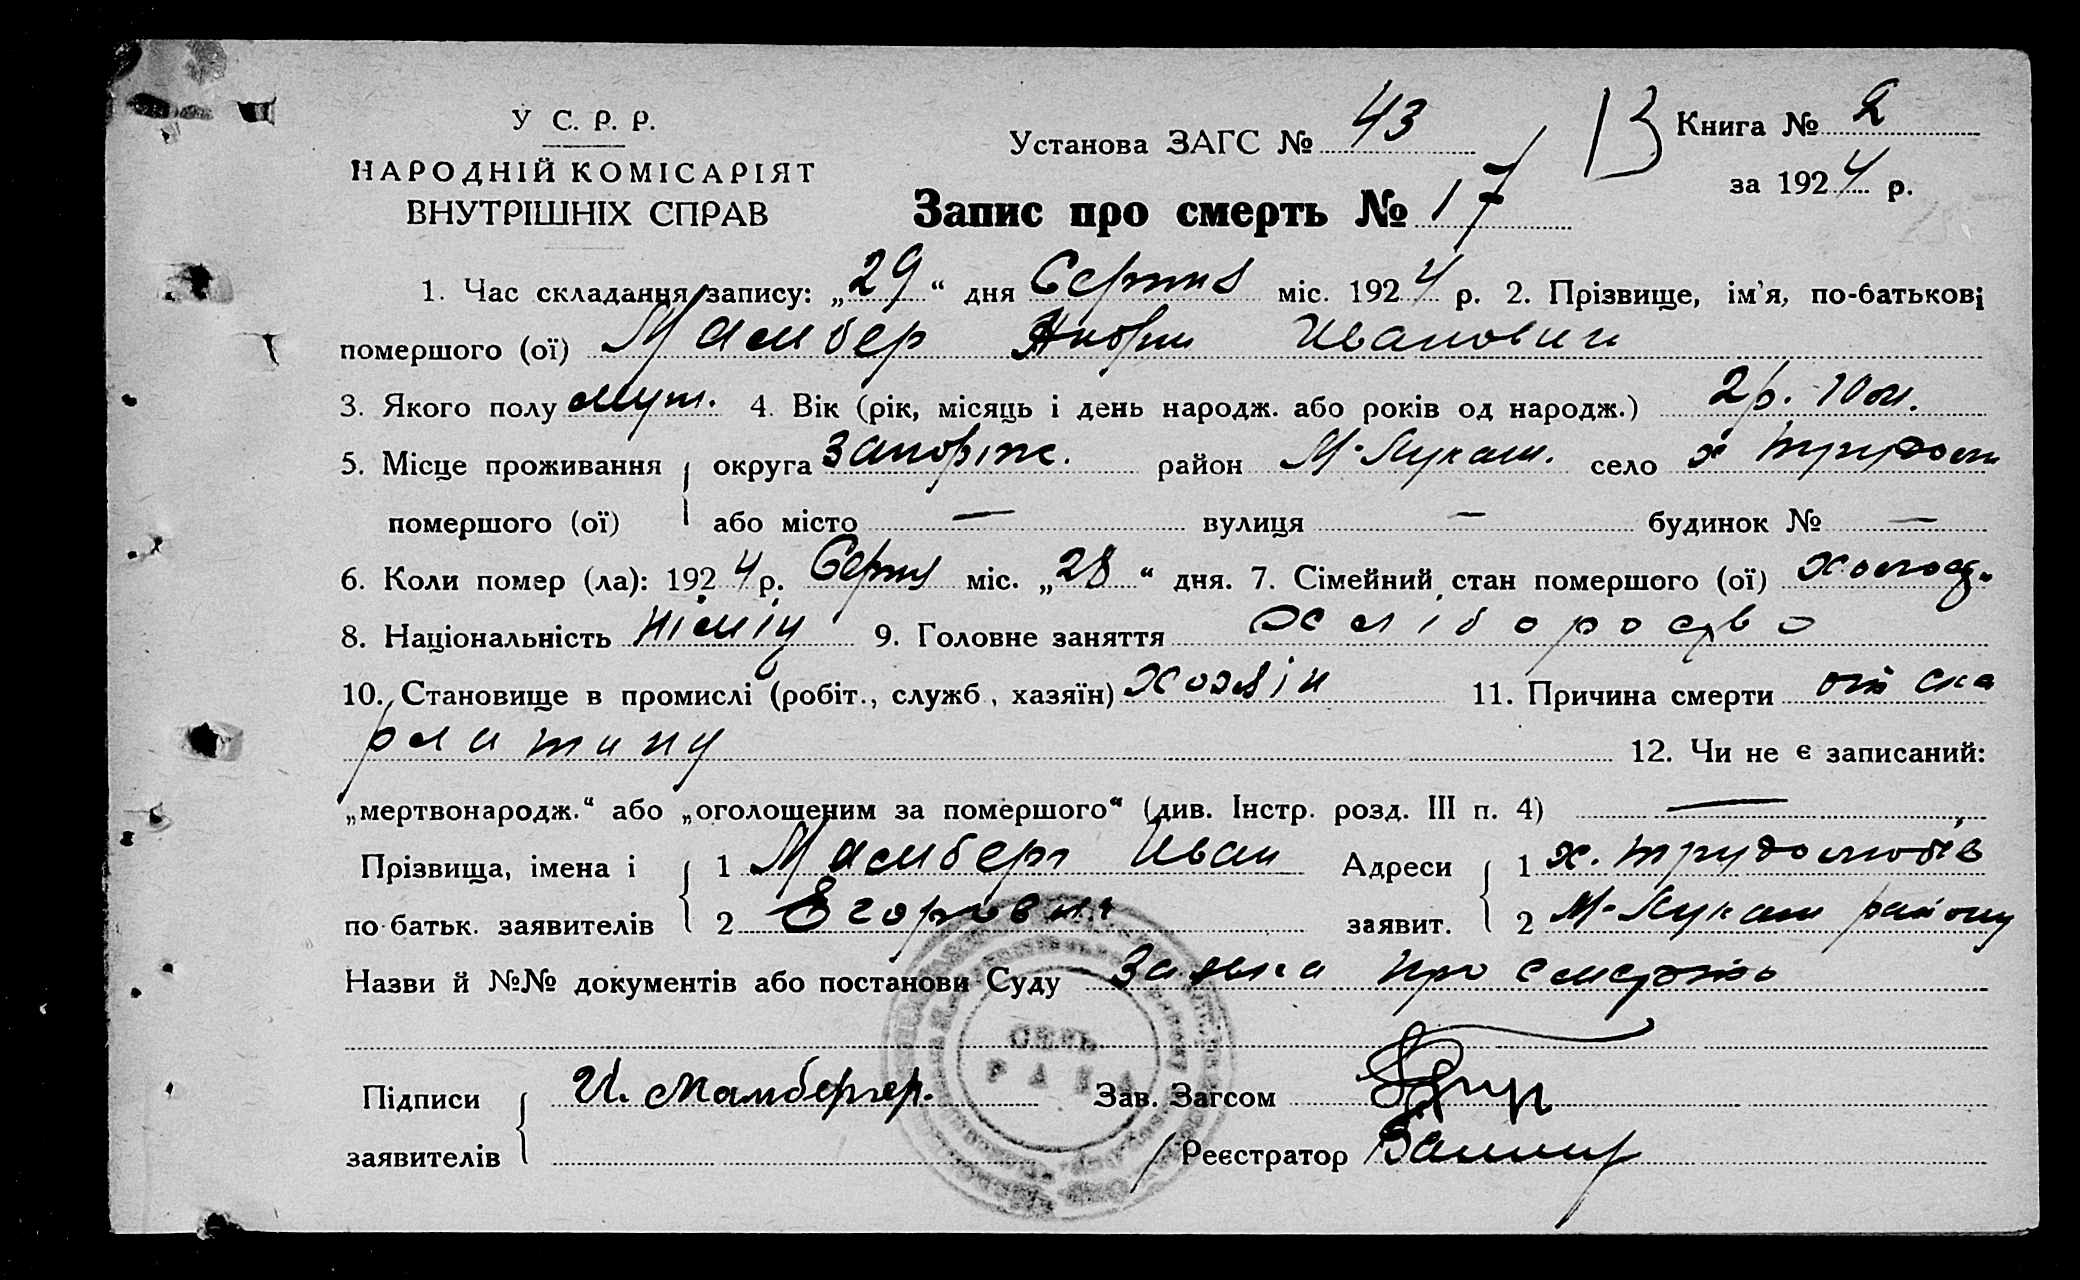 У С. Р. Р.
НАРОДНІЙ КОМІСАРІЯТ
ВНУТРІШНІХ СПРАВ
Установа ЗАГС № 43
В Книга № 2
за 1924 р.
Запис про смерть № 17
1. Час складання запису: „29“ дня Серпня міс. 1924 р. 2. Прізвище, ім'я, по-батькові
помершого (ої) Мамбер Андри Иванович
3. Якого полу муж. 4. Вік (рік, місяць і день народж. або років од народж.) 2 р. 10 м.
5. Місце проживання округа Запоріж. район М-Лукаш. село х
помершого (ої) або місто — вулиця — будинок № —
6. Коли помер (ла): 1924 р. Серпня міс. „28“ дня. 7. Сімейний стан помершого (ої) холост.
8. Національність Німіц 9. Головне заняття хлібородство
10. Становище в промислі (робіт., служб., хазяїн) хозяін 11. Причина смерти от ска
рлатину 12. Чи не є записаний:
„мертвонародж.“ або „оголошеним за помершого“ (див. Інстр. розд. III п. 4) —
Прізвища, імена і 1 Мамберг Иван Адреси 1 х. трудолюбів
по-батьк. заявителів 2 Егорович заявит. 2 М-Лукаш району
Назви й №№ документів або постанови Суду Заявка про смерть
СІЛЬ
РАДА
Підписи И. Мамбергер. Зав. Загсом
заявителів Реєстратор